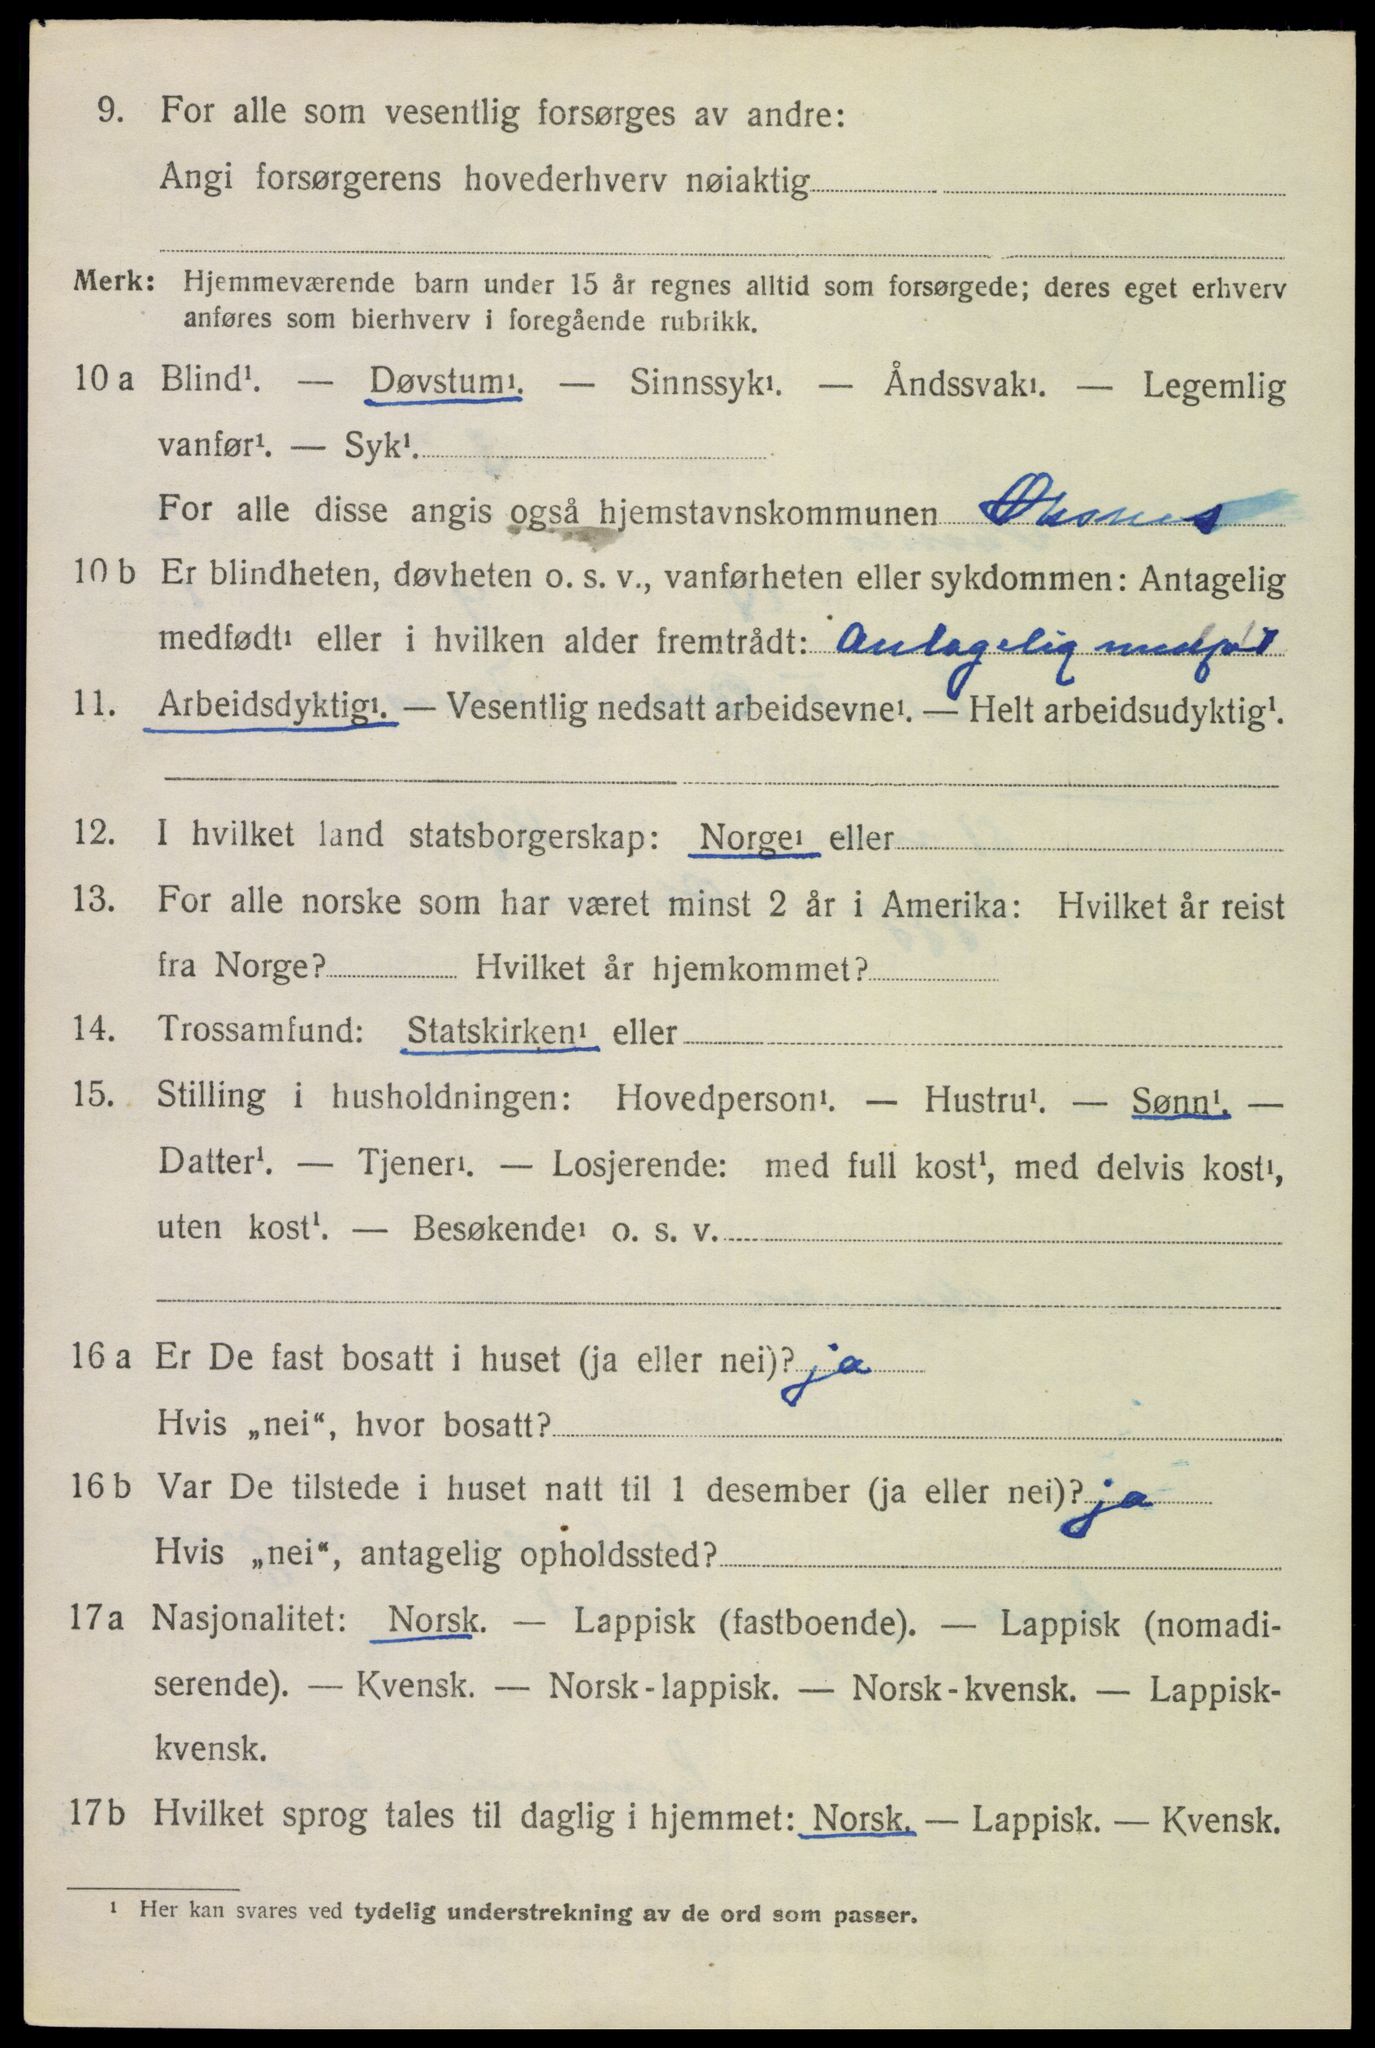 9. For alle som vesentlig forsørges av andre:
Angi forsørgerens hovederhverv nøiaktig
Merk: Hjemmeværende barn under 15 år regnes alltid som forsørgede; deres eget erhverv
anføres som bierhverv i foregående rubrikk.
10 a Blind¹. — Døvstum¹. — Sinnssyk¹. — Åndssvak¹. — Legemlig
vanfør¹. — Syk¹.
For alle disse angis også hjemstavnskommunen Øksnes
10 b Er blindheten, døvheten o. s. v., vanførheten eller sykdommen: Antagelig
medfødt¹ eller i hvilken alder fremtrådt: Antagelig medfødt
11. Arbeidsdyktig¹. — Vesentlig nedsatt arbeidsevne¹. — Helt arbeidsudyktig¹.
12. I hvilket land statsborgerskap: Norge¹ eller
13. For alle norske som har været minst 2 år i Amerika: Hvilket år reist
fra Norge? Hvilket år hjemkommet?
14. Trossamfund: Statskirken¹ eller
15. Stilling i husholdningen: Hovedperson¹. — Hustru¹. — Sønn¹. —
Datter¹. — Tjener¹. — Losjerende: med full kost¹, med delvis kost¹,
uten kost¹. — Besøkende¹ o. s. v.
16 a Er De fast bosatt i huset (ja eller nei)? ja
Hvis „nei“, hvor bosatt?
16 b Var De tilstede i huset natt til 1 desember (ja eller nei)? ja
Hvis „nei“, antagelig opholdssted?
17 a Nasjonalitet: Norsk. — Lappisk (fastboende). — Lappisk (nomadi-
serende). — Kvensk. — Norsk-lappisk. — Norsk-kvensk. — Lappisk-
kvensk.
17 b Hvilket sprog tales til daglig i hjemmet: Norsk. — Lappisk. — Kvensk.
¹ Her kan svares ved tydelig understrekning av de ord som passer.